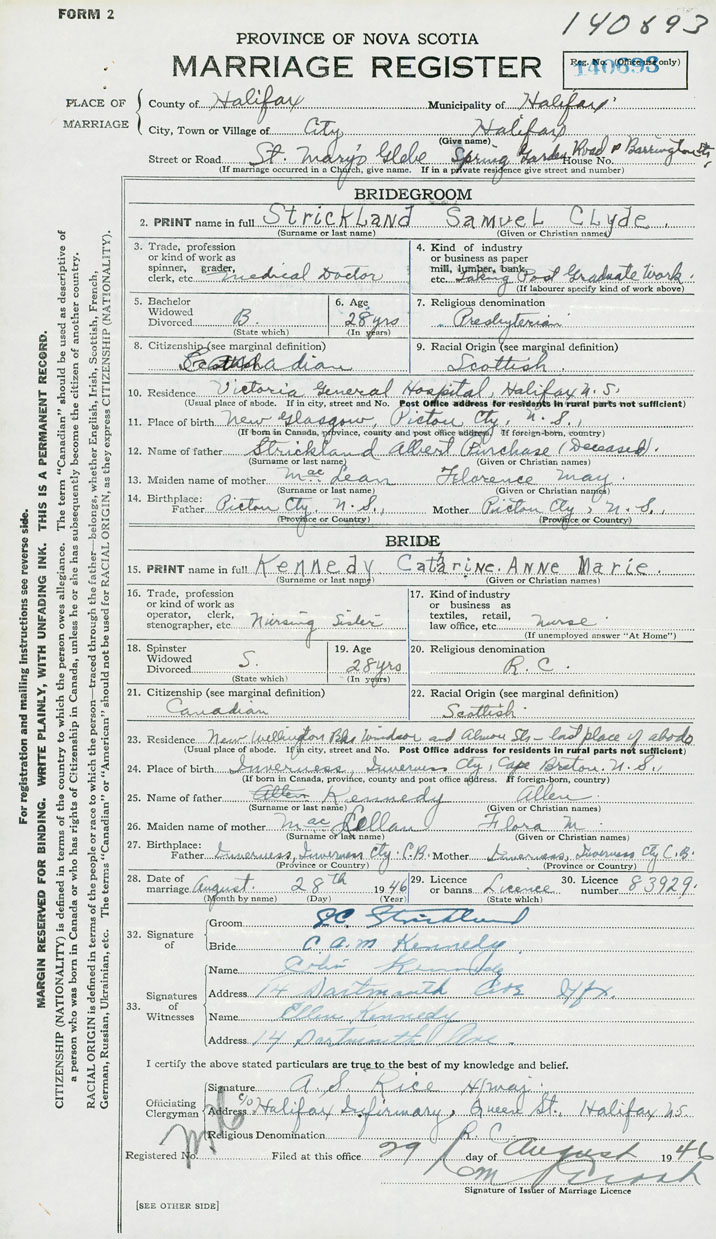 FORM 2
140893
PROVINCE OF NOVA SCOTIA
MARRIAGE REGISTER
Reg. No. (Office use only)
140893
PLACE OF MARRIAGE
County of Halifax Municipality of Halifax
City, Town or Village of City Halifax
(Give name)
Street or Road St. Mary's Glebe Spring Garden Road & Barrington Sts, House No.
(If marriage occurred in a Church, give name. If in a private residence give street and number)
BRIDEGROOM
2. PRINT name in full Strickland Samuel Clyde.
(Surname or last name) (Given or Christian names)
3. Trade, profession or kind of work as spinner, grader, clerk, etc. Medical Doctor
4. Kind of industry or business as paper mill, lumber, bank, etc. Taking Post Graduate Work.
(If labourer specify kind of work above)
5. Bachelor Widowed Divorced B.
(State which)
6. Age 28 yrs
(In years)
7. Religious denomination Presbyterian
8. Citizenship (see marginal definition) Canadian
9. Racial Origin (see marginal definition) Scottish.
10. Residence Victoria General Hospital, Halifax N.S.
(Usual place of abode. If in city, street and No. Post Office address for residents in rural parts not sufficient)
11. Place of birth New Glasgow, Pictou Cty, N.S.,
(If born in Canada, province, county and post office address If foreign-born, country)
12. Name of father Strickland Albert Purchase (Deceased).
(Surname or last name) (Given or Christian names)
13. Maiden name of mother MacLean Florence May.
(Surname or last name) (Given or Christian names)
14. Birthplace: Father Pictou Cty, N.S., Mother Pictou Cty, N.S.,
(Province or Country) (Province or Country)
BRIDE
15. PRINT name in full Kennedy Catherine Anne Marie.
(Surname or last name) (Given or Christian names)
16. Trade, profession or kind of work as operator, clerk, stenographer, etc. Nursing Sister
17. Kind of industry or business as textiles, retail, law office, etc. Nurse
(If unemployed answer "At Home")
18. Spinster Widowed Divorced S.
(State which)
19. Age 28 yrs
(In years)
20. Religious denomination R.C.
21. Citizenship (see marginal definition) Canadian
22. Racial Origin (see marginal definition) Scottish.
23. Residence New Wellington Bks Windsor and Almon Sts - last place of abode
(Usual place of abode. If in city, street and No. Post Office address for residents in rural parts not sufficient)
24. Place of birth Inverness, Inverness Cty, Cape Breton. N.S.,
(If born in Canada, province, county and post office address. If foreign-born, country)
25. Name of father Kennedy Allen
(Surname or last name) (Given or Christian names)
26. Maiden name of mother MacLellan Flora M.
(Surname or last name) (Given or Christian names)
27. Birthplace: Father Inverness, Inverness Cty. C.B. Mother Inverness, Inverness Cty C.B.
(Province or Country) (Province or Country)
28. Date of marriage August. 28th 1946
(Month by name) (Day) (Year)
29. Licence or banns Licence
(State which)
30. Licence number 83929.
32. Signature of
Groom S.C. Strickland
Bride C.A.M Kennedy.
33. Signatures of Witnesses
Name Colin Kennedy
Address 14 Dartmouth Ave Hfx.
Name Ellen Kennedy
Address 14 Dartmouth Ave.
I certify the above stated particulars are true to the best of my knowledge and belief.
Officiating Clergyman
Signature A.S. Rice H/Maj.
Address c/o Halifax Infirmary, Queen St., Halifax N.S.
Religious Denomination R.C.
Registered No. Filed at this office 29 day of August 1946
Signature of Issuer of Marriage Licence
[SEE OTHER SIDE]
For registration and mailing instructions see reverse side.
MARGIN RESERVED FOR BINDING. WRITE PLAINLY, WITH UNFADING INK. THIS IS A PERMANENT RECORD.
CITIZENSHIP (NATIONALITY) is defined in terms of the country to which the person owes allegiance. The term "Canadian" should be used as descriptive of
a person who was born in Canada or who has rights of Citizenship in Canada, unless he or she has subsequently become the citizen of another country.
RACIAL ORIGIN is defined in terms of the people or race to which the person—traced through the father—belongs, whether English, Irish, Scottish, French,
German, Russian, Ukrainian, etc. The terms "Canadian" or "American" should not be used for RACIAL ORIGIN, as they express CITIZENSHIP (NATIONALITY).